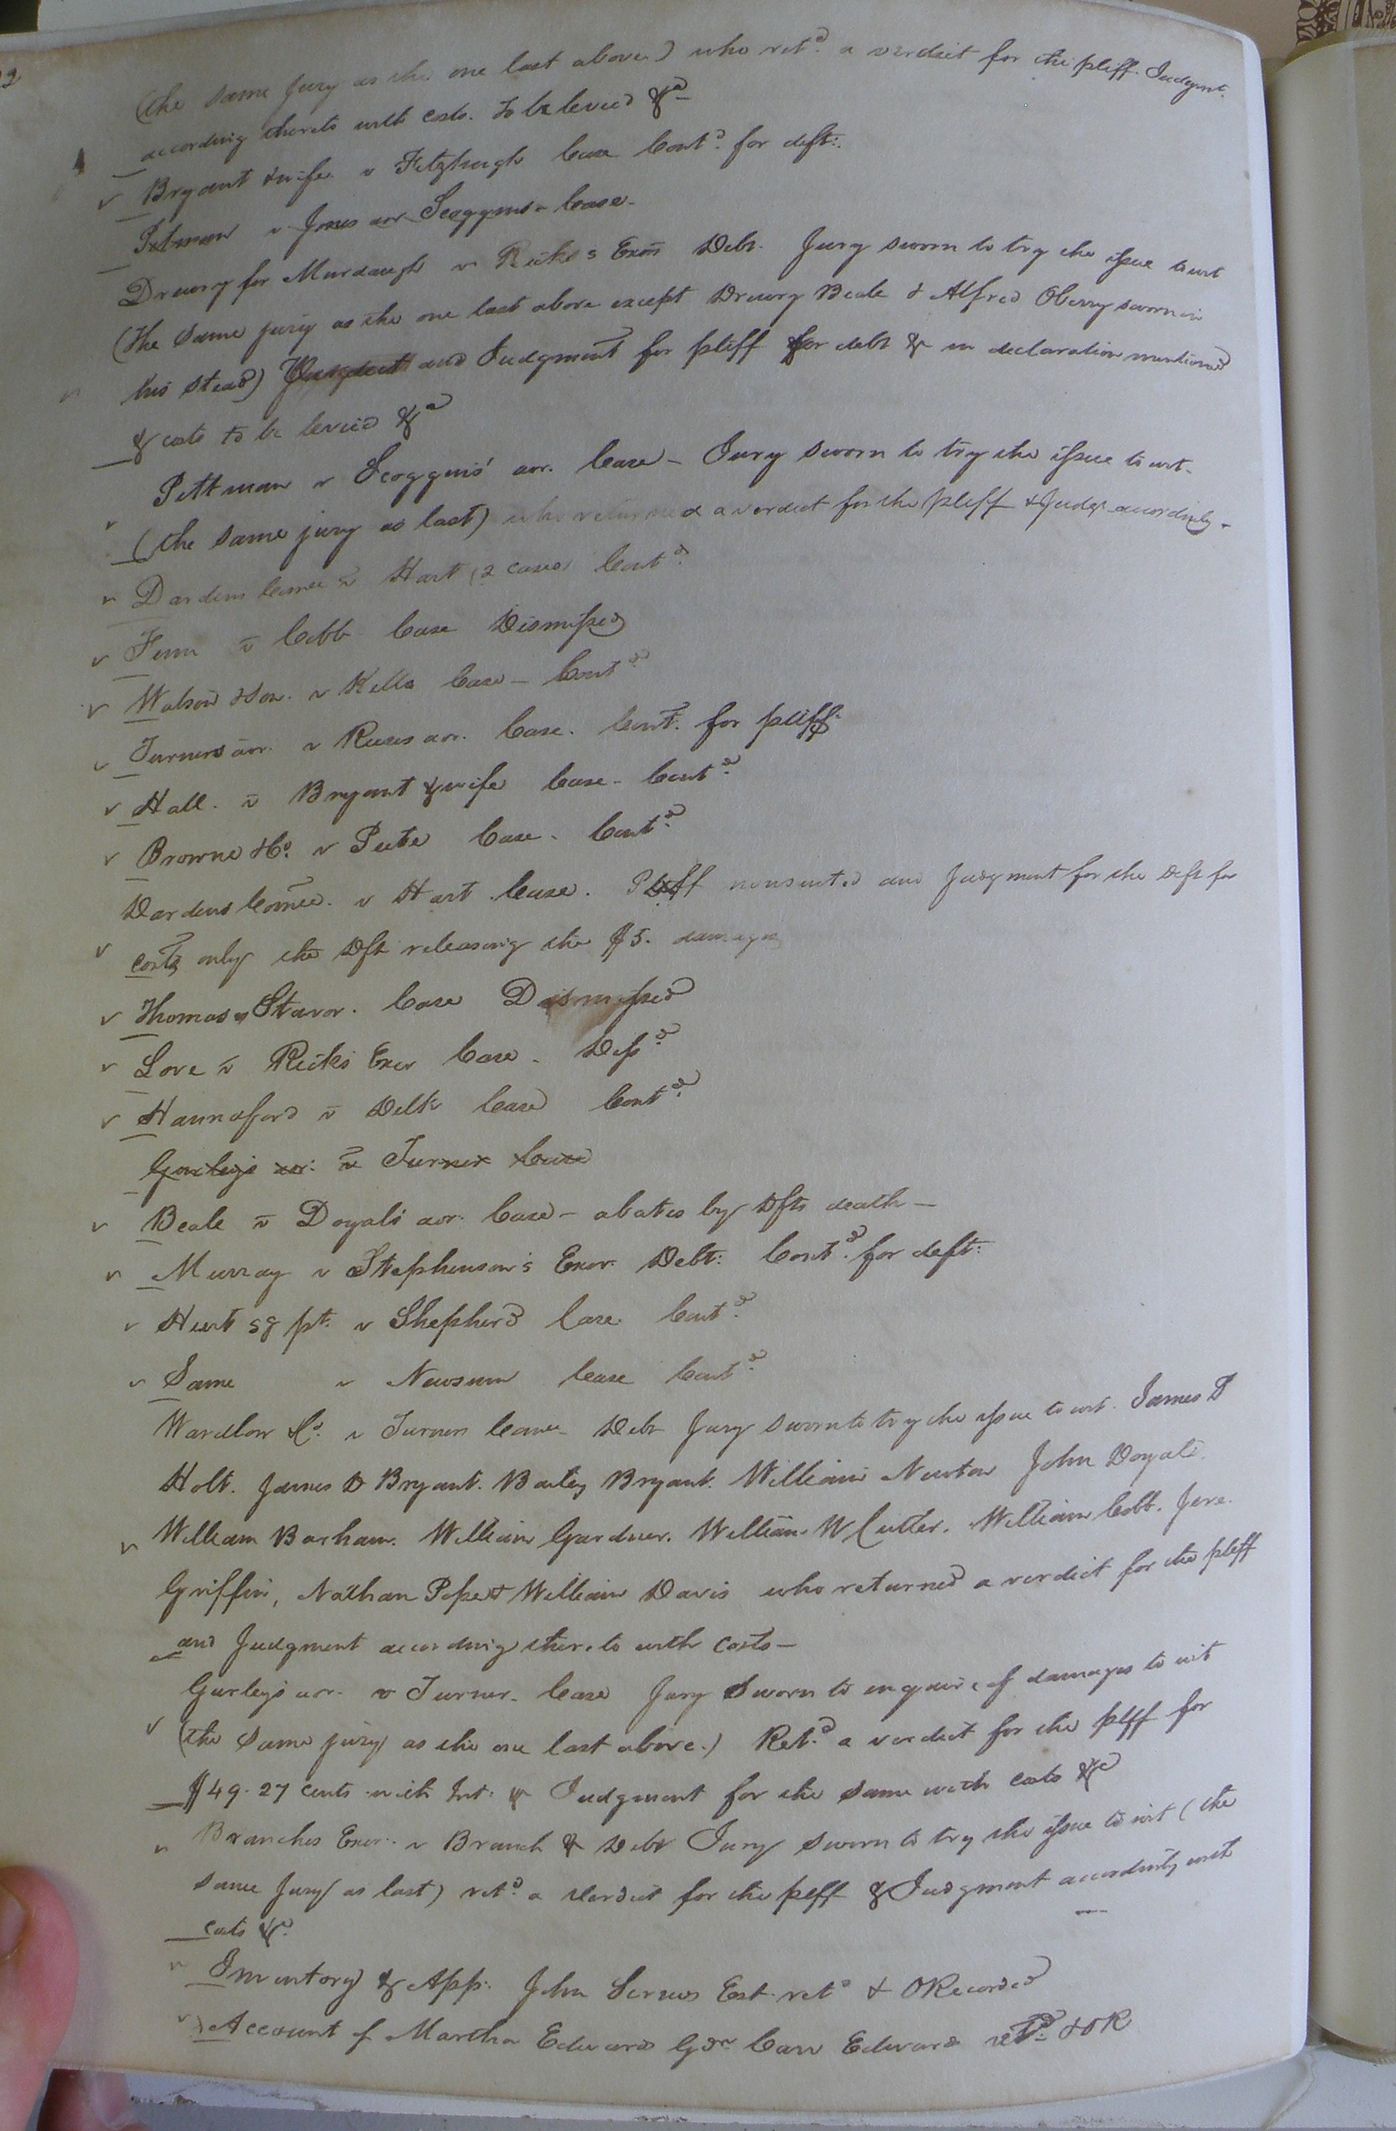 (the same jury as the one last above) who retd. a verdict for the pltff. Judgmt.
according thereto with costs. to be levied &a
Bryant & wife v Fitzhugh Case Contd. for deft:.
Pitman v Jones aor Scoggins - Case -
Drewry for Murdaugh v Ricks's Exors Debt. Jury sworn to try the issue to wit
(the same jury as the one last above except Drewry Beale & Alfred Oberry sworn in
his stead) and Judgment for pltff for debt & in declaration mentioned
& costs to be levied &a
Pittman v Scoggins' aor. Case - Jury sworn to try the issue to wit -
(the same jury as last) who returned a verdict for the pltff & Judgt accordingly -
Dardens Comee v Hart (2 cases) Contd.
Fenn v Cobb Case Dismissed
Watson v Kello Case - Contd
Turners aor. v aor. Case. Cont. for pltff:
Hall. v Bryant & wife Case - Contd.
Browne & Co. v Peete Case - Contd.
Dardens Comee. v Hart Case. Pltff nonsuited and Judgment for the Deft for
costs only the Dft releasing the $5. damages
Thomas v Case Dismissed
Love v Ricks Exor Case - Disd.
Hannaford v Delk Case Contd.
Gurley's aor: v Turner Case
Beale v Doyals aor. Case - abates by Dfts death -
Murray v Stephenson's Exor. Debt: Contd. for deft:
Hunt sg pt. v Shepherd Case Contd.
Same v Newsum Case Contd.
Wardlow & Co. v Turners Comee - Debt Jury sworn to try the issue to wit. James P
Holt. James D Bryant. Barley Bryant. William Newton John Doyal.
William Barham. William Gardner. William W Cutler. William Cobb. Jere.
Griffin, Nathan Pope & William Davis who returned a verdict for the pltff
and Judgment according thereto with costs -
Gurley's aor. v Turner - Case Jury Sworn to enquire of damages to wit
(the same jury as the one last above.) Retd. a verdict for the pltff for
$49.27 cents with Int: & Judgment for the same with costs &c
Branches Exor:. v Branch & Debt Jury sworn to try the issue to wit (the
same Jury as last) retd. a Verdict for the pltff & Judgment accordingly with
costs &c.
Inventory & App: John Est. retd & ORecorded
Account of Martha Edwards Gdn Edwards retd: & OR